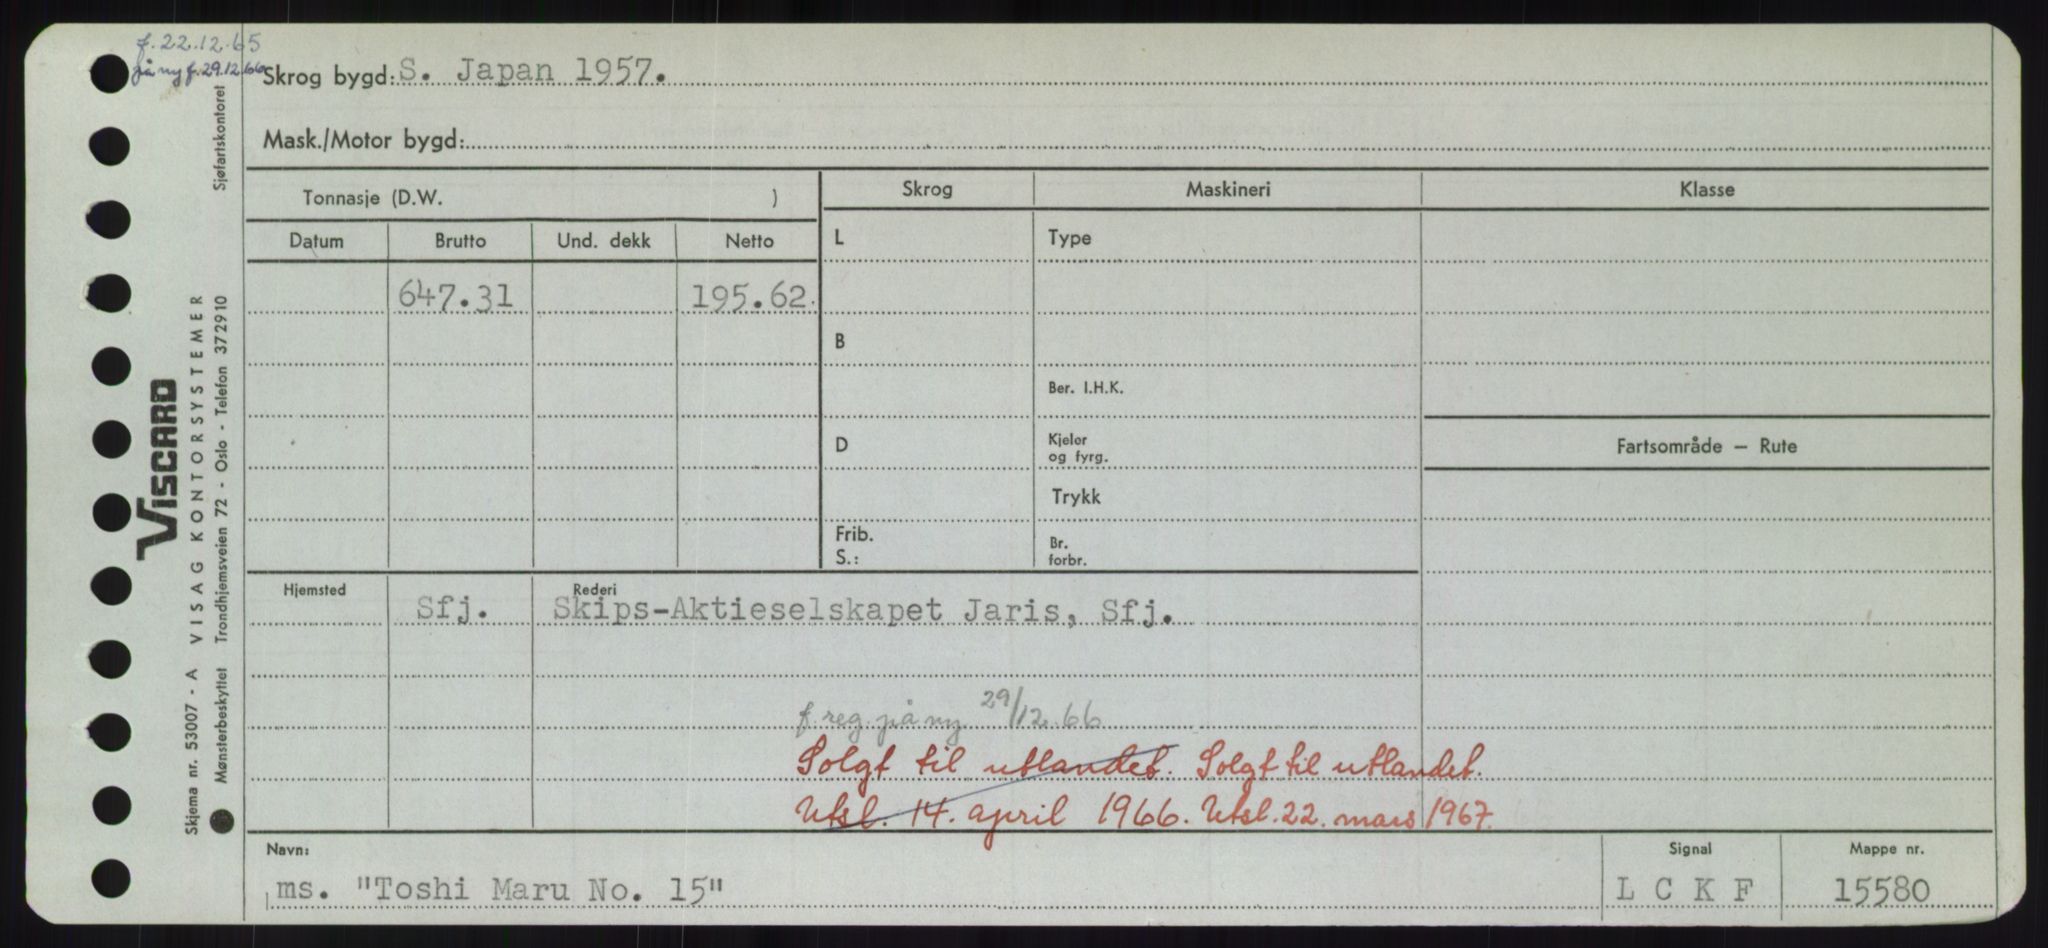 f. 22.12.65
på ny f. 29.12.66
Skrog bygd: S. Japan 1957.
Mask./Motor bygd:
Tonnasje (D.W. )
Skrog Maskineri Klasse
Datum Brutto Und. dekk Netto
L Type
647.31 195.62.
B
Ber. I.H.K.
D Kjeler og fyrg.
Fartsområde — Rute
Trykk
Frib. S.: Br. forbr.
Hjemsted Sfj. Rederi Skips-Aktieselskapet Jaris, Sfj.
f. reg. på ny 29/12.66
Solgt til utlandet. Solgt til utlandet.
Utsl. 14. april 1966. Utsl. 22. mars 1967.
Navn: Signal Mappe nr.
ms. "Toshi Maru No. 15" L C K F 15580
Viscard
Skjema nr. 53007 - A VISAG KONTORSYSTEMER
Mønsterbeskyttet Trondhjemsveien 72 - Oslo - Telefon 372910 Sjøfartskontoret